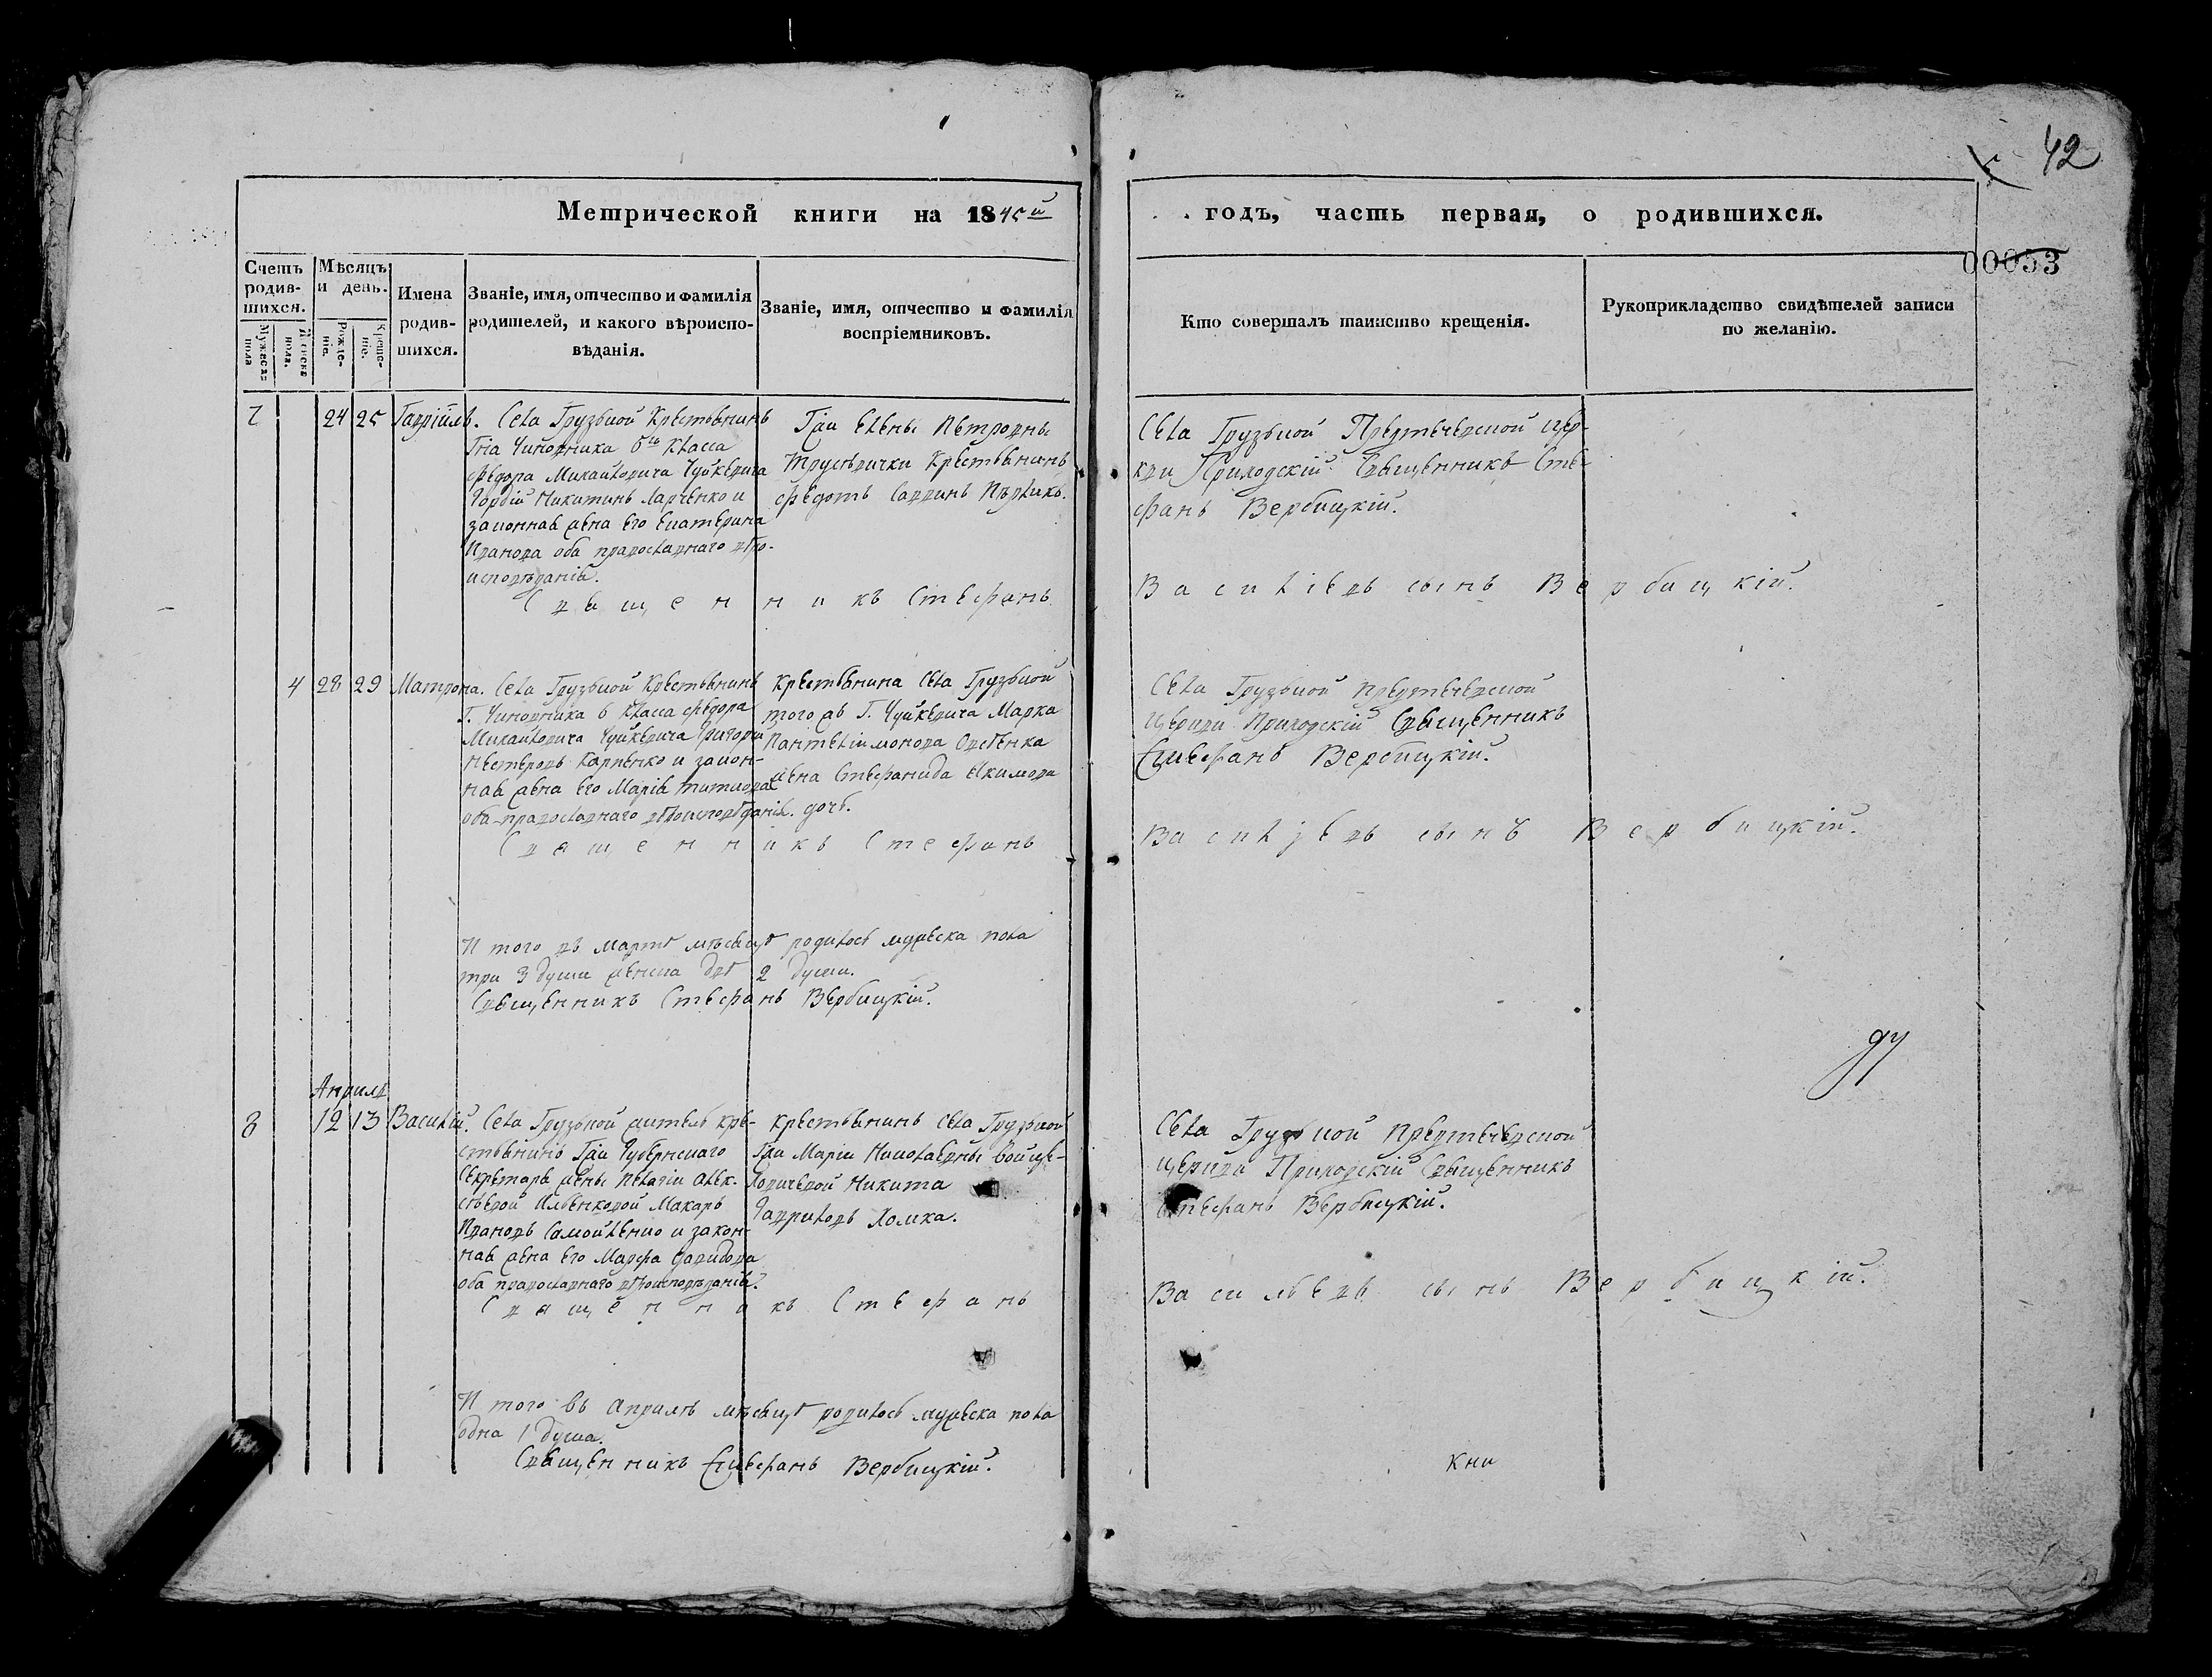 42
Метрической книги на 1845й
годъ, часть первая, о родившихся.
00053
Счетъ родив-шихся.
Мужеска пола
Женска пола.
Мѣсяцъ и день.
Рожде-нія.
Креще-нія.
Имена родив-шихся.
Званіе, имя, отчество и фамилія
родителей, и какого вѣроиспо-
вѣданія.
Званіе, имя, отчество и фамилія
воспріемниковъ.
Кто совершалъ таинство крещенія.
Рукоприкладство свидѣтелей записи
по желанію.
7 24 25 Гавріилъ.
Села Грузьной Крестьянинъ
Гна Чиновника 6го Класса
Федора Михайловича Чуйкевича
Гордій Никитинъ и
законная жена его Екатерина
Иванова оба православнаго вѣро-
исповѣданія.
Гжи Елены Петровны
Крестьянинъ
Федотъ Саввинъ
Села Грузьной Предтечевской Цер-
кви Приходскій Священникъ Сте-
фанъ Вербицкій.
Священникъ Стефанъ Васильевъ сынъ Вербицкій.
4 28 29 Матрона.
Села Грузьной Крестьянинъ
Г. Чиновника 6 Класса Федора
Михайловича Чуйкевича Григорій
Нестеровъ Карпенко и закон-
ная жена его Марія Титиова
оба православнаго вѣроисповѣданія.
Крестьянина Села Грузьной
того жъ Г. Чуйкевича Марка
Пантелимонова
жена Стефанида Якимова
дочь.
Села Грузьной Предтечевской
Церкви Приходскій Священникъ
Стефанъ Вербицкій.
Священникъ Стефанъ Васильевъ сынъ Вербицкій.
И того въ Мартѣ мѣсяцѣ родилось мужеска пола
три 3 души женска двѣ 2 души.
Священникъ Стефанъ Вербицкій.
Апрѣль
8 12 13 Василій.
Села Грузьной житель кре-
стьянинъ Гжи Губернскаго
Секретаря жены Пелагіи Алек-
сѣевой Ильенковой Макаръ
Ивановъ Самойленко и закон-
ная жена его Марфа Давидова
оба православнаго вѣроисповѣданія.
Крестьянинъ Села Грузьной
Гжи Маріи Николаевны Войце-
ховичевой Никита
Гавриловъ Хомка.
Села Грузьной Предтечевской
Церкви Приходскій Священникъ
Стефанъ Вербицкій.
Священникъ Стефанъ Васильевъ сынъ Вербицкій.
И того въ Апрѣлѣ мѣсяцѣ родилось мужеска пола
одна 1 душа.
Священникъ Стефанъ Вербицкій.
Кни